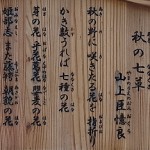 秋の七草
山上臣憶良
秋の野に 咲きたる花を 指折り
かき数うれば 七種の花
萩の花 尾花葛花 瞿麦の花
姫部志 また藤袴 朝貌の花